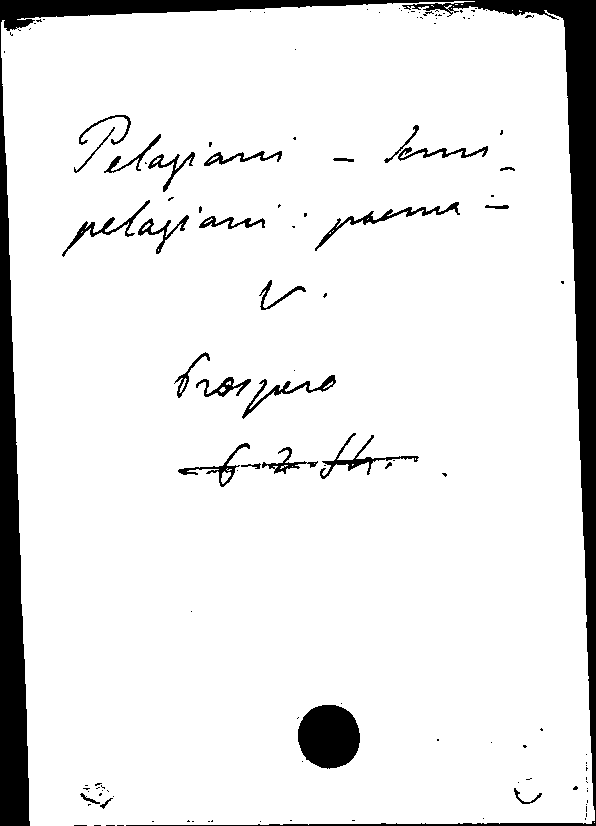 Pelagiani - Semi-
pelagiani : poema -
V.
Prospero